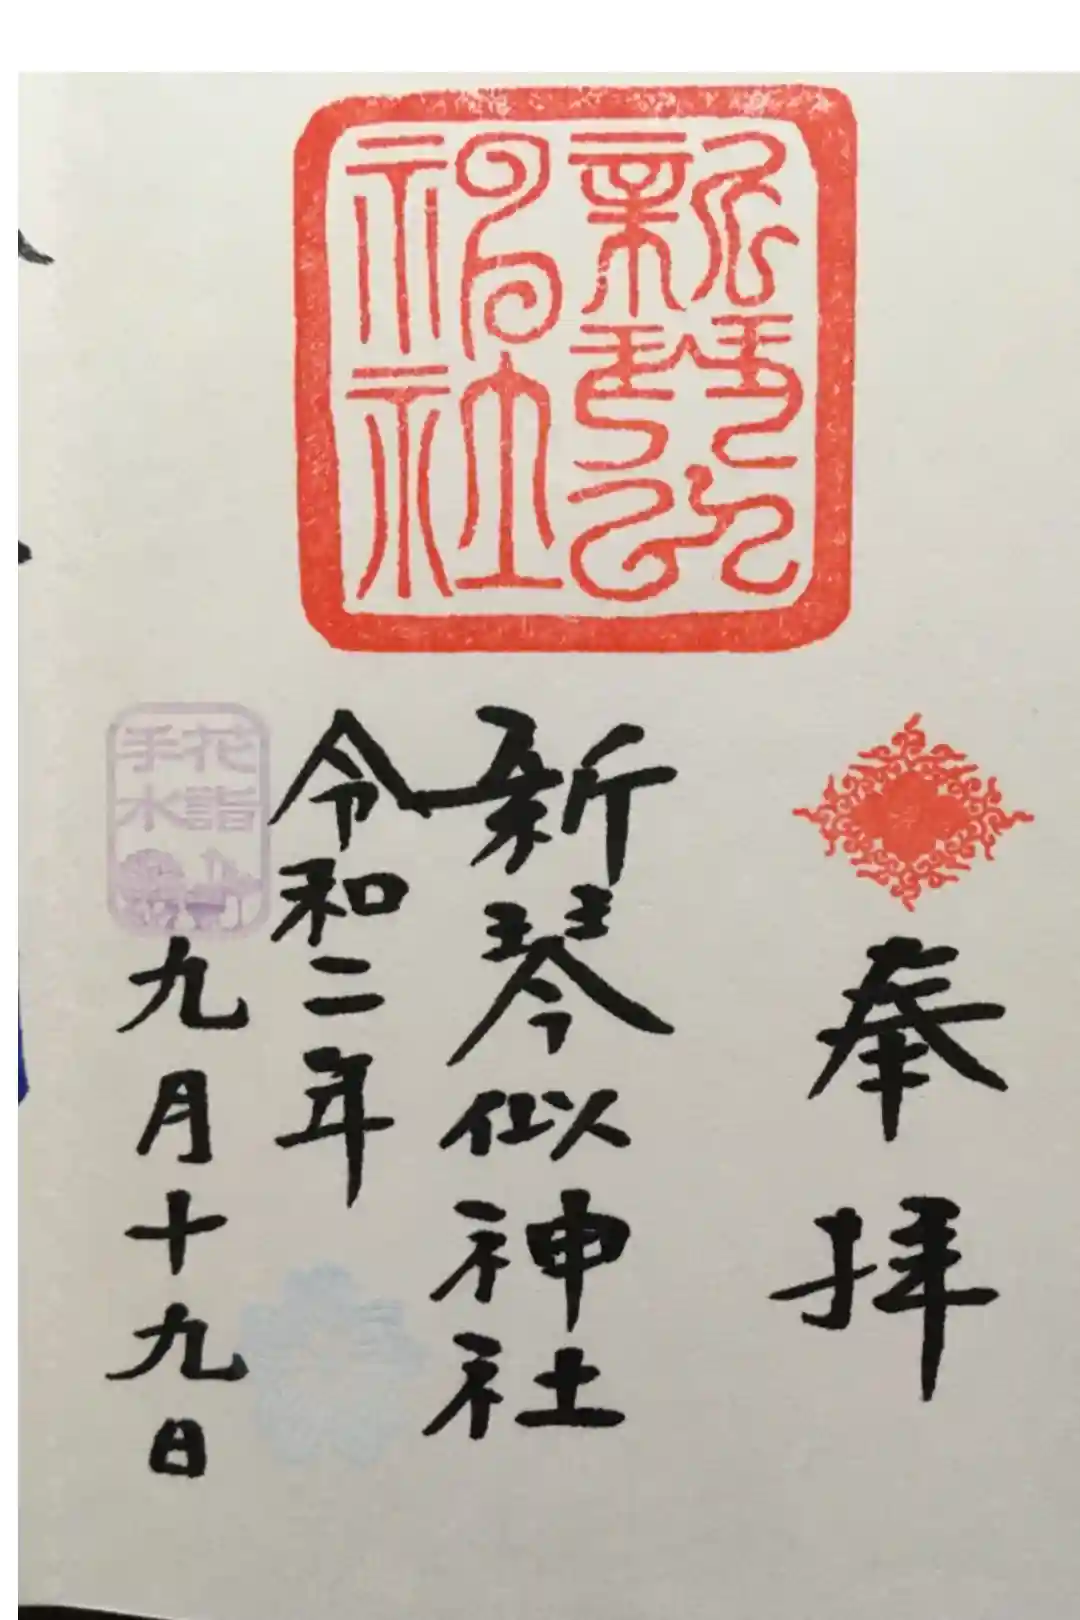 新琴似
神社
奉拝
新琴似神社
令和二年
花詣
手水
九月十九日